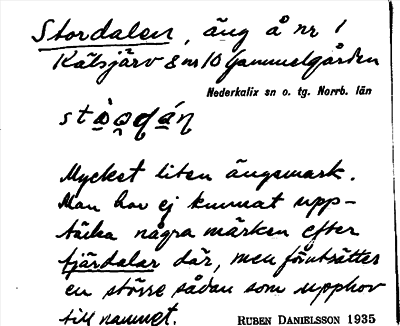 Stordalen, äng å nr 1
Kälsjärv 8 nr 10 Gammelgården
Nederkalix sn o. tg. Norrb. län
Mycket liten ängsmark.
Man har ej kunnat upp-
täcka några märken efter
tjärdalar där, men förutsätter
en större sådan som upphov
till namnet.
RUBEN DANIELSSON 1935